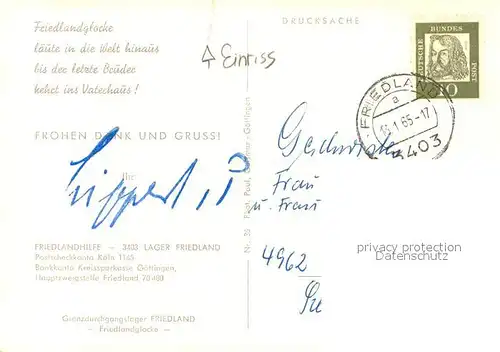 Friedlandglocke
läute in die Welt hinaus
bis der letzte Brüder
kehrt ins Vaterhaus!
FROHEN DANK UND GRUSS!
Ihr
FRIEDLANDHILFE — 3403 LAGER FRIEDLAND
Postscheckkonto Köln 1165
Bankkonto Kreissparkasse Göttingen,
Hauptzweigstelle Friedland
Grenzdurchgangslager FRIEDLAND
— Friedlandglocke —
DRUCKSACHE
Einriss
DEUTSCHE BUNDES POST
FRIEDLAND
a
1.65-17
3403
Frau
u. Frau
4962
privacy protection
Datenschutz